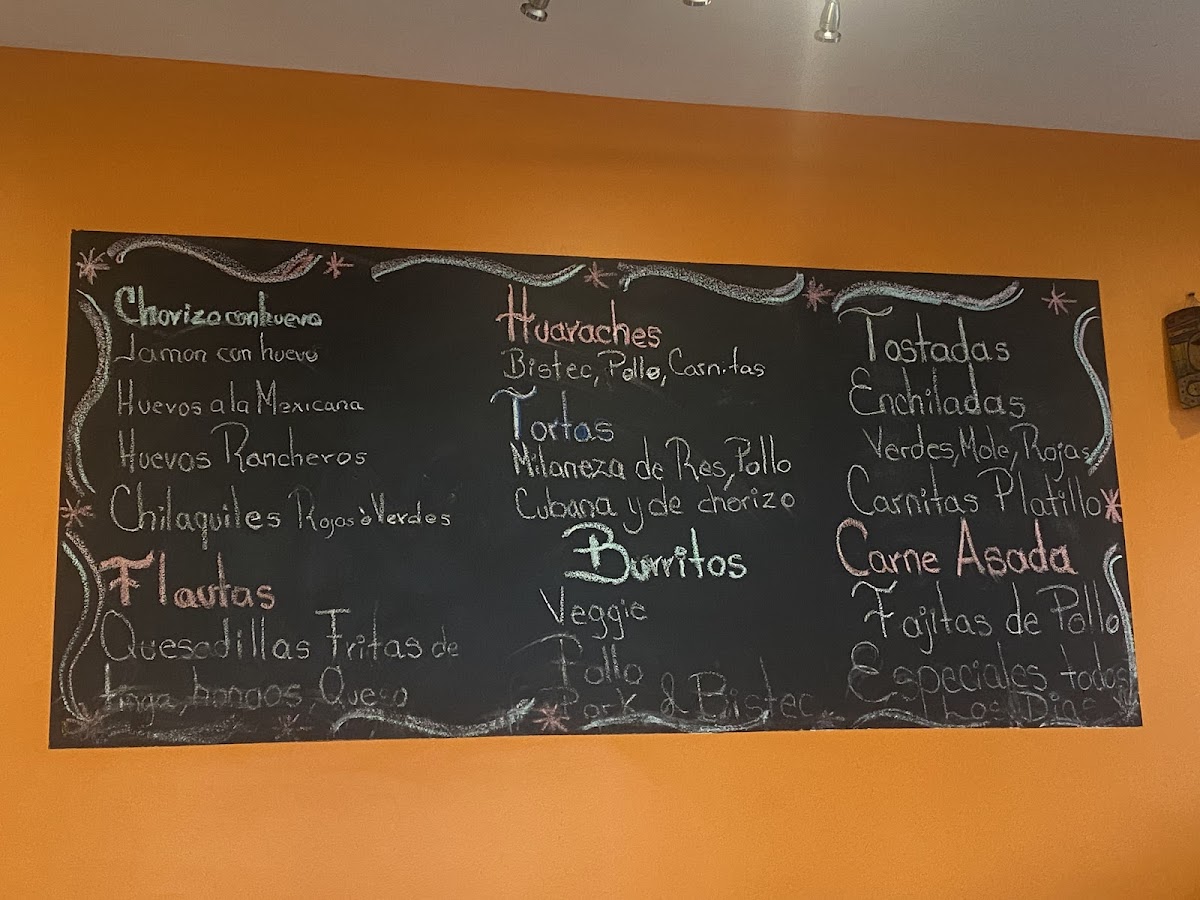 Chorizo con huevo
Jamon con huevo
Huevos a la Mexicana
Huevos Rancheros
Chilaquiles Rojos ò Verdes
Flautas
Quesadillas Fritas de
tinga, hongos, Queso
Huaraches
Bistec, Pollo, Carnitas
Tortas
Milaneza de Res, Pollo
Cubana y de chorizo
Burritos
Veggie
Pollo
Pork & Bistec
Tostadas
Enchiladas
Verdes, Mole, Rojas
Carnitas Platillo
Carne Asada
Fajitas de Pollo
Especiales todos
Los Dias